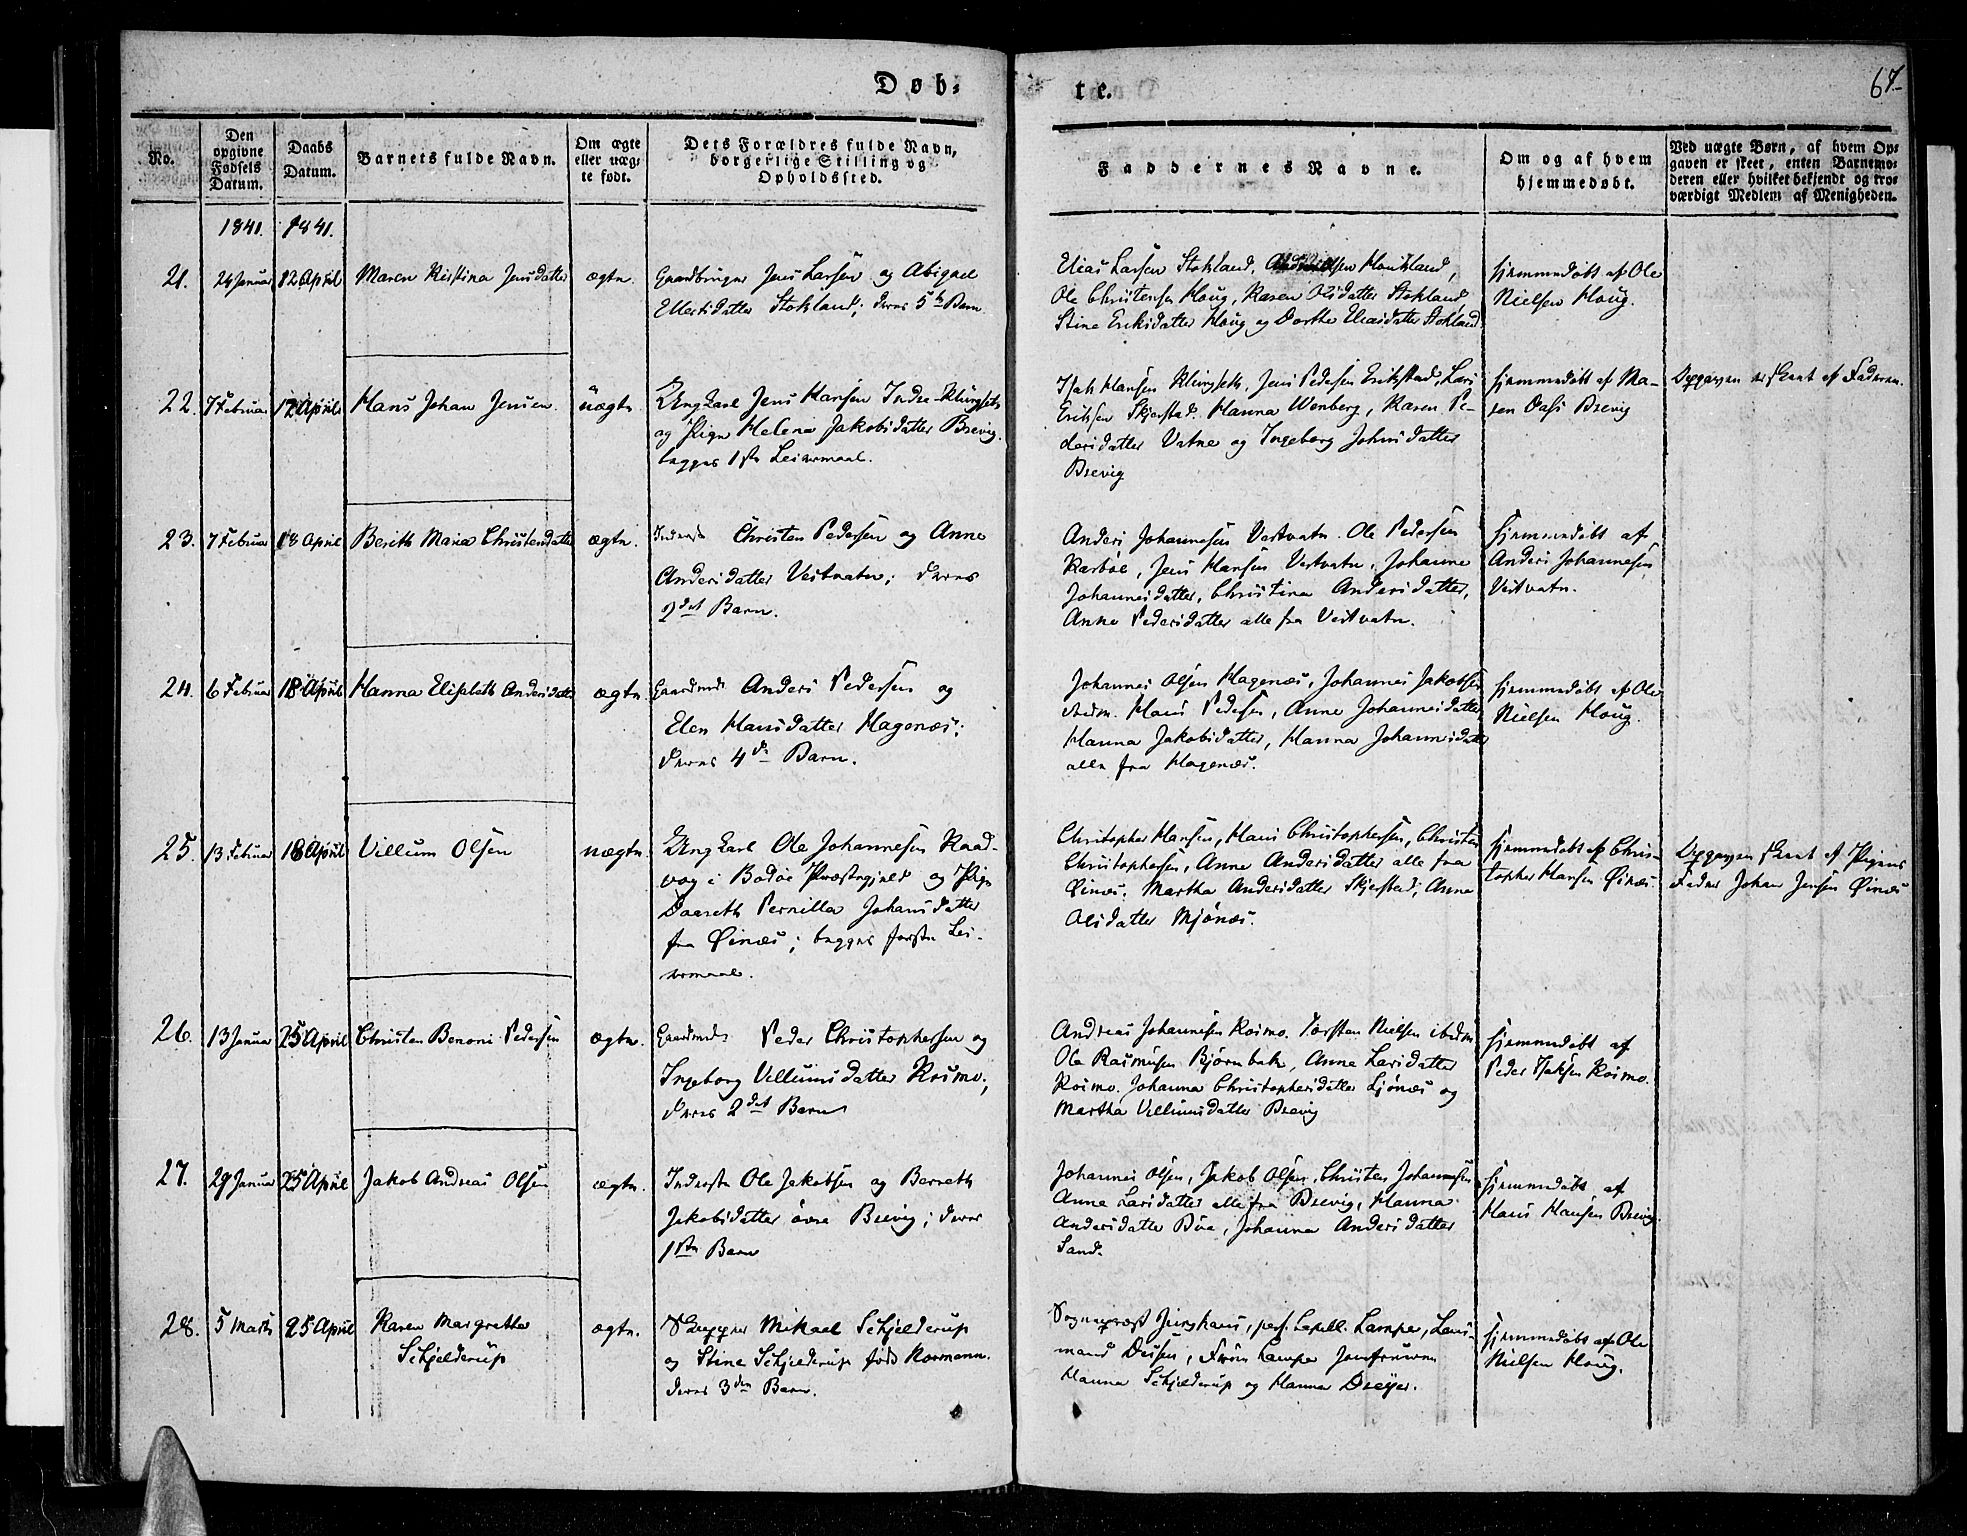 Døb-
te.
67
No.
Den
opgivne
Fødsels
Datum.
Daabs
Datum.
Barnets fulde Navn.
Om ægte
eller uæg-
te født.
Dets Forældres fulde Navn,
borgerlige Stilling og
Opholdssted.
Faddernes Navne.
Om og af hvem
hjemmedøbt.
Ved uægte Børn, af hvem Op-
gaven er skeet, enten Barnemo-
deren eller hvilket bekjendt og tro-
værdigt Medlem af Menigheden.
1841. 1841.
21. 24 Januar 12 April Maren Kistina Jensdatter ægte.
Gaardbruger Jens Larsen og Abigael
Ellertsdatter Stokland; deres 5te Barn
Elias Larsen Stokland, Houkland,
Ole Christensen Houg, Karen Olsdatter Stokland,
Stine Eriksdatter Houg og Dorthe Eliasdatter Stokland
hjemmedøbt af Ole
Nielsen Houg.
22. 7 Februar 12 April Hans Johan Jensen uægte
Ung Karl Jens Hansen Indre-Klungset
og Pige Helena Jakobsdatter Brevig.
begges 1ste Leiermaal.
Isak Hansen Klungseth, Jens Pedersen Erikstad, Lars
Eriksen Skjerstad. Hanna Wenberg, Karen Pe-
dersdatter Vatne og Ingeborg Johnsdatter
Brevig
hjemmedøbt af Ma-
Brevig
Opgaven er skeet af Faderen.
23. 7 Februar 18 April Berith Maria Christensdatter ægte.
Inderst Christen Pedersen og Anne
Andersdatter Vestvatn; deres
2det Barn.
Anders Johannesen Vestvatn. Ole Pedersen
Karbøl, Jens Hansen Vestvatn, Johanna
Johannesdatter, Christina Andersdatter,
Anne Pedersdatter alle fra Vestvatn.
hjemmedøbt af
Anders Johannesen
Vestvatn.
24. 6 Februar 18 April Hanna Elisabeth Andersdatter ægte.
Gaardmd. Anders Pedersen og
Elen Hansdatter Hagenæs;
deres 4de Barn.
Johannes Olsen Hagenæs, Johannes Jakobsen
ibidm. Hans Pedersen, Anne Johannesdatter
Hanna Jakobsdatter, Hanna Johannesdatter
alle fra Hagenæs.
hjemmedøbt af Ole
Nielsen Houg.
25. 13 Februar 18 April Villum Olsen uægte.
Ung Karl Ole Johannesen Kaad-
vog i Bodøe Præstegjeld og Pige
Daareth Pernilla Johansdatter
fra Øinæs; begges første Lei-
ermaal.
Christopher Hansen, Hans Christophersen, Christen
Christophersen, Anne Andersdatter alle fra
Øinæs. Martha Andersdatter Skjerstad; Anne
Olsdatter Mjönæs.
hjemmedøbt af Chris-
topher Hansen Øinæs.
Opgaven skeet af Pigens
Fader Johan Jensen Øinæs
26. 13 Januar 25 April Christen Benoni Pedersen ægte.
Gaardmd. Peder Christophersen og
Ingeborg Villumsdatter Kosmo;
deres 2det Barn
Andreas Johannesen Kosmo. Torsten Nielsen ibidm
Ole Rasmusen Bjørnbak, Anne Larsdatter
Kosmo. Johanna Christophersdatter Ljønæs og
Martha Villumsdatter Brevig
hjemmedøbt af
Peder Isaksen Kosmo.
27. 29 Januar 25 April Jakob Andreas Olsen ægte.
Inderste Ole Jakobsen og Berreth
Jakobsdatter øvre Brevig; deres
1ste Barn
Johannes Olsen, Jakob Olsen, Christen Johannesen
Anne Larsdatter alle fra Brevig, Hanna
Andersdatter Bua, Johanna Andersdatter
Sand.
hjemmedøbt af
Hans Hansen Brevig.
28. 5 Marts 25 April Karen Margrethe
Schjelderup
ægte.
Skipper Mikael Schjelderup
og Stine Schjelderup født Normann.
deres 3die Barn.
Sognepræst Junghans, pers. Capell. Lampe, Lens-
mand Dusen, Fröm Lampe Jomfruerne
Hanna Schjelderup og Hanna Dreyer.
hjemmedøbt af Ole
Nielsen Houg.